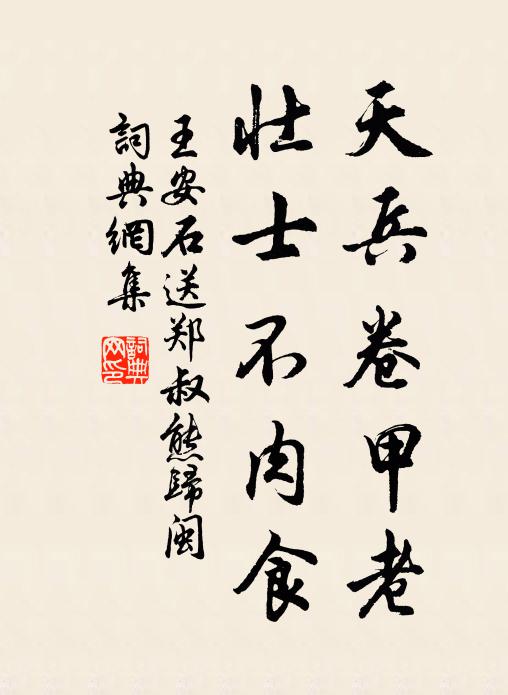 天兵卷甲老
壮士不肉食
王安石送郑叔熊歸闽
詞典網集
詞典网印